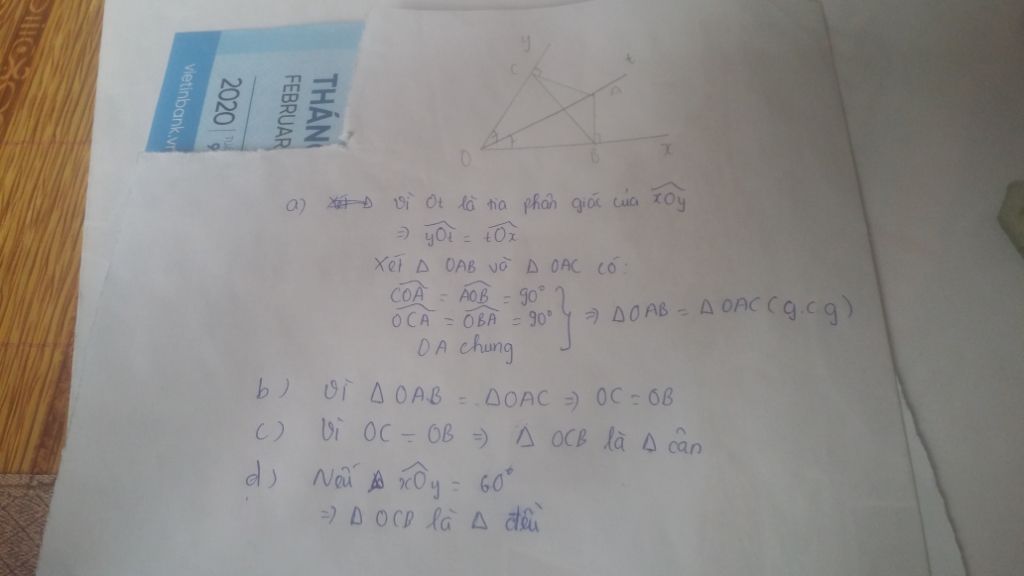 vietinbank.v
2020
THÁN
FEBRUAR
y
C
t
A
O
B
x
a) vì Ot là tia phân giác của xOy
=> yOt = tOx
Xét Δ OAB và Δ OAC có:
COA = AOB = 90°
OCA = OBA = 90°
OA chung
=> ΔOAB = ΔOAC (g.c.g)
b) Vì ΔOAB = ΔOAC => OC = OB
c) Vì OC = OB => Δ OCB là Δ cân
d) Nếu xOy = 60°
=> Δ OCB là Δ đều